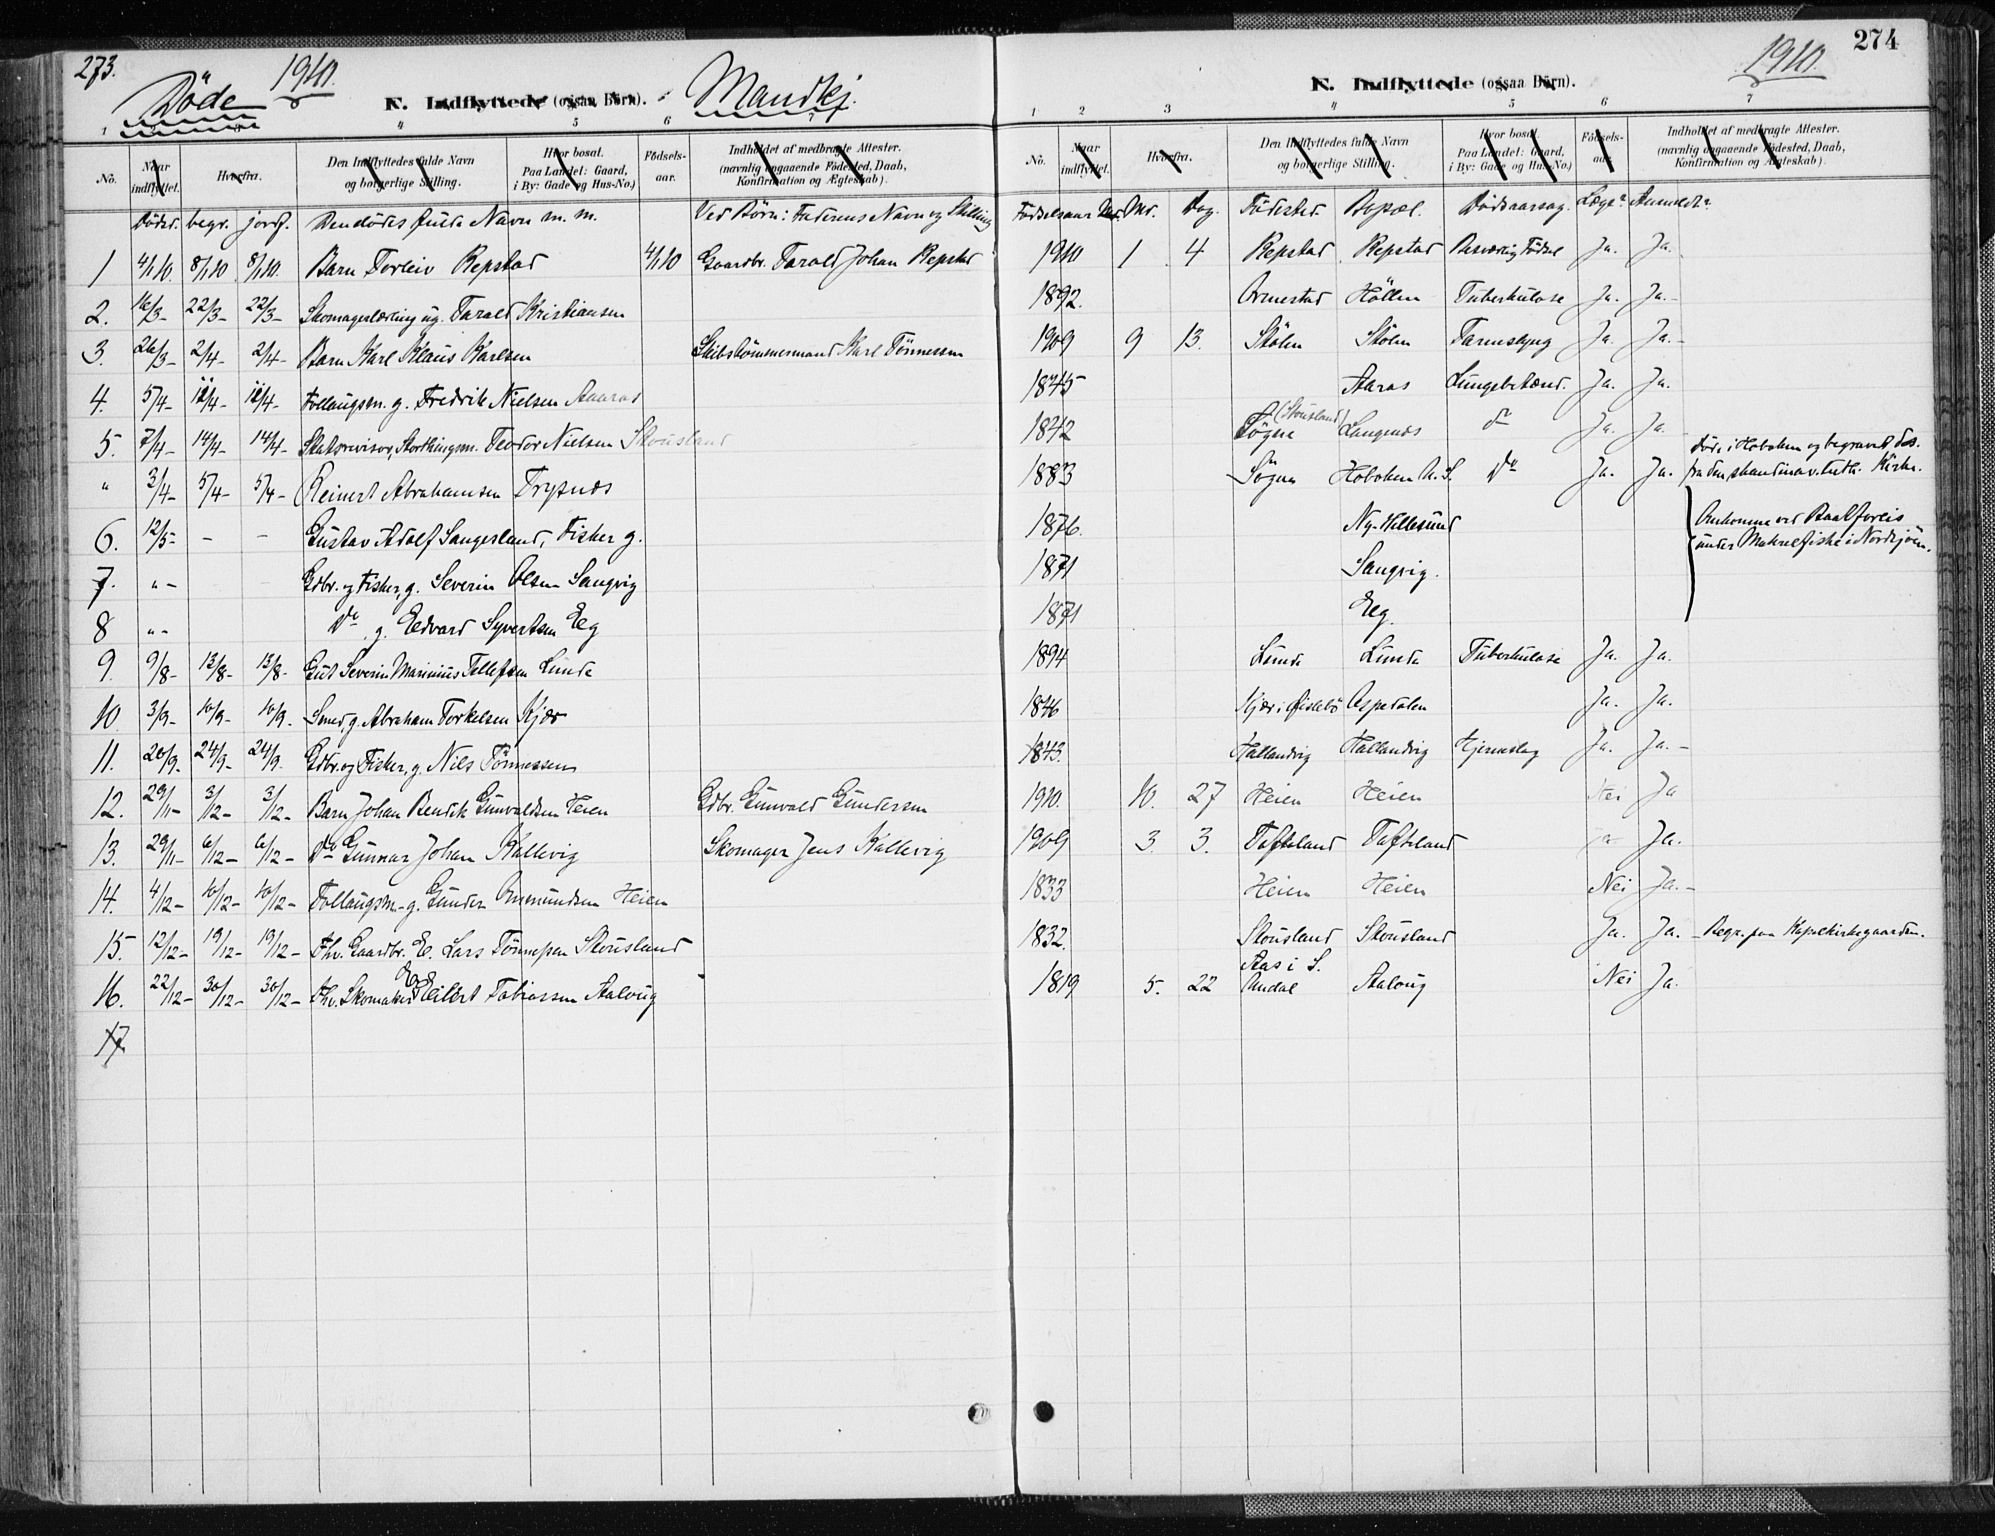 273.
Döde
1910.
K. Indflyttede (ogsaa Börn).
Mandkj.
1 3 4 5 6
No. Naar indflyttet. Hvorfra. Den Indflyttedes fulde Navn og borgerlige Stilling. Hvor bosat. Paa Landet: Gaard, i By: Gade og Hus-No.) Födselsaar. Indholdet af medbragte Attester. (navnlig angaaende Födested, Daab, Konfirmation og Ægteskab).
Dödsd. begr. jordf. Den dödes fulde Navn m. m. Ved Börn: Faderens Navn og Stilling
1 4/1 10. 8/1 10. 8/1 10. Barn Torleiv Repstad 4/1 10 Gaardbr. Tarald Johan Repstad
2. 16/3- 22/3- 22/3- Skomagerlærling ug. Tarald Kristiansen
3. 26/3- 2/4- 2/4- Barn Karl Klaus Karlsen Skibstömmermand Karl Tönnessen
4. 5/4- 12/4- 12/4- Follaugsm. g. Fredrik Nielsen Aaras
5. 7/4- 14/4- 14/4- Statsrevisor, Storthingsm. Teodor Nielsen Skousland
" 3/4- 5/4- 5/4- Reinert Abrahamsen Trysnes
6. 12/5- - - Gustav Adolf Langesland, Fisker g.
7. "- Gdbr. og Fisker, g. Severin Olsen Sangvig
8 "- Do g. Edvard Syvertsen Eeg
9. 9/8- 13/8- 13/8- Gut Severin Marinius Tellefsen Lunde
10. 3/9- 10/9- 10/9- Smed g. Abraham Torkelsen Kjær
11. 20/9- 24/9- 24/9- Gdbr. og Fisker, g. Nils Tönnessen
12. 29/11- 3/12- 3/12- Barn Johan Bendik Gunvaldsen Heien Gdbr. Gunvald Gundersen
13. 29/11- 6/12- 6/12- Do Gunnar Johan Kallevig Skomager Jens Kallevig
14. 4/12- 10/12- 10/12- Follaugsm. g. Gunder Omundsen Heien
15. 12/12- 19/12- 19/12- Fhv. Gaardbr. E. Lars Tönnesen Skousland
16. 22/12- 30/12- 30/12- Fhv. Skomaker E. Eilert Tobiassen Aaloug
17
274
1910.
K. Indflyttede (ogsaa Börn).
1 2 3 4 5 6 7
No. Naar indflyttet. Hvorfra. Den Indflyttedes fulde Navn og borgerlige Stilling. Hvor bosat. Paa Landet: Gaard, i By: Gade og Hus-No.) Födselsaar. Indholdet af medbragte Attester. (navnlig angaaende Födested, Daab, Konfirmation og Ægteskab).
Födselsaar Md. Dag. Födested. Bopæl. Dödsaarsag. Læge? Anmeldt?
1910 1 4 Repstad Repstad Besværlig Födsel Ja. Ja.
1892. Ormestad Höllen Tuberkulose Ja. Ja.-
1909 9 13. Stölen Stölen Tarmslyng Ja. Ja.-
1845 Aaras Lungebetænd. Ja. Ja.
1842 Sögne (Skousland) Langenes do Ja. Ja.
1883 Sögne Hoboken U. S. Do Ja. Ja. Död i Hoboken og begravet der fra den skandinav. luth. Kirke.
1876. Ny-Hellesund Omkomne ved Baatforlis
1871 Sangvig. under Makrelfiske i Nordsjöen.
1871 Eeg.
1894 Lunde Lunde Tuberkulose Ja. Ja.
1846 Kjær i Öislebö Aspedalen Ja. Ja.
1843. Hallandvig Hallandvig Hjerneslag Ja. Ja.-
1910. 10. 27 Heien Heien Nei Ja
1909 3. 3. Tofteland Tofteland Ja Ja.
1833 Heien Heien Nei Ja.-
1832. Skousland Skousland Ja. Ja. - Begr. paa Kapelkirkegaarden.
1819 5. 22 Aas i S. Undal Aaloug Nei Ja.